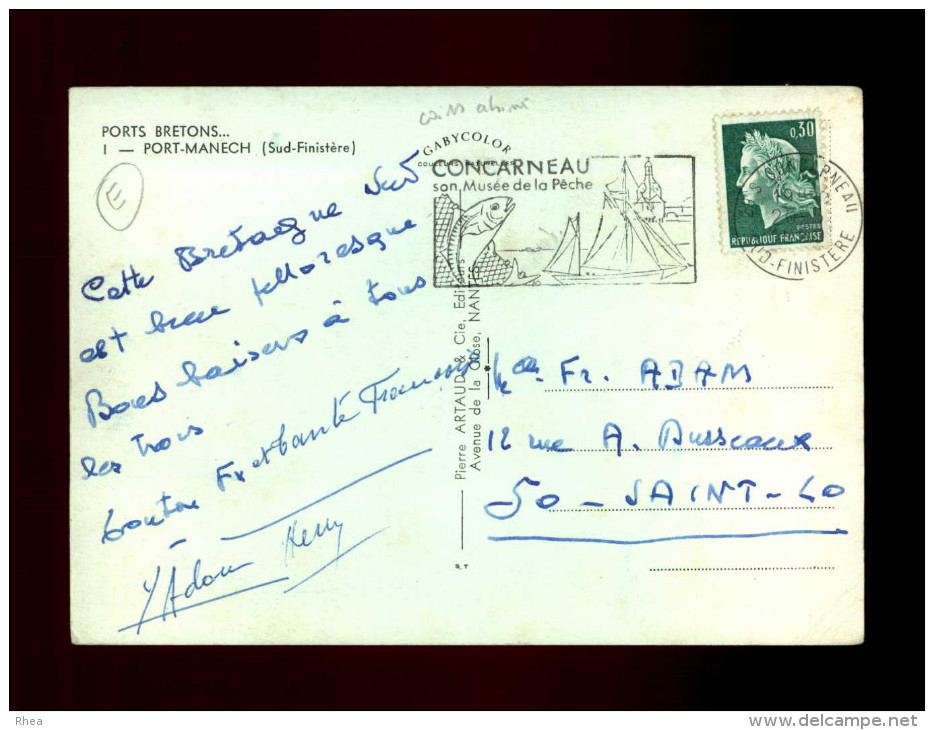 coins abimé
PORTS BRETONS...
1 — PORT-MANECH (Sud-Finistère)
E
GABYCOLOR
COULEURS NATURELLES
CONCARNEAU
son Musée de la Pêche
0,30
POSTES
REPUBLIQUE FRANÇAISE
CONCARNEAU
SUD-FINISTERE
Cette Bretagne Sud
est bien pittoresque
Bons baisers à tous
les trois
tonton Fx et tante Françoise
Adam
Pierre ARTAUD & Cie, Editeurs
Avenue de la Close, NANTES
Fr. ADAM
12 rue A. Busseaux
50 - SAINT-LO
Rhea
www.delcampe.net